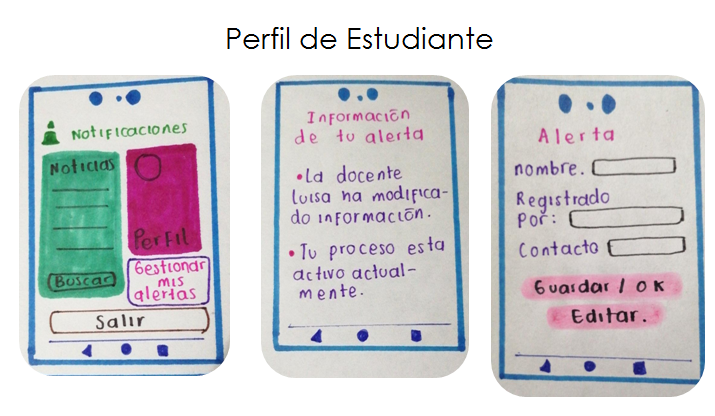 Perfil de Estudiante
Notificaciones
Noticias
Perfil
Buscar
Gestionar
mis
alertas
Salir
Información
de tu alerta
•La docente
luisa ha modifica-
do información.
•Tu proceso esta
activo actual-
mente.
Alerta
nombre.
Registrado
Por:
Contacto
Guardar / OK
Editar.